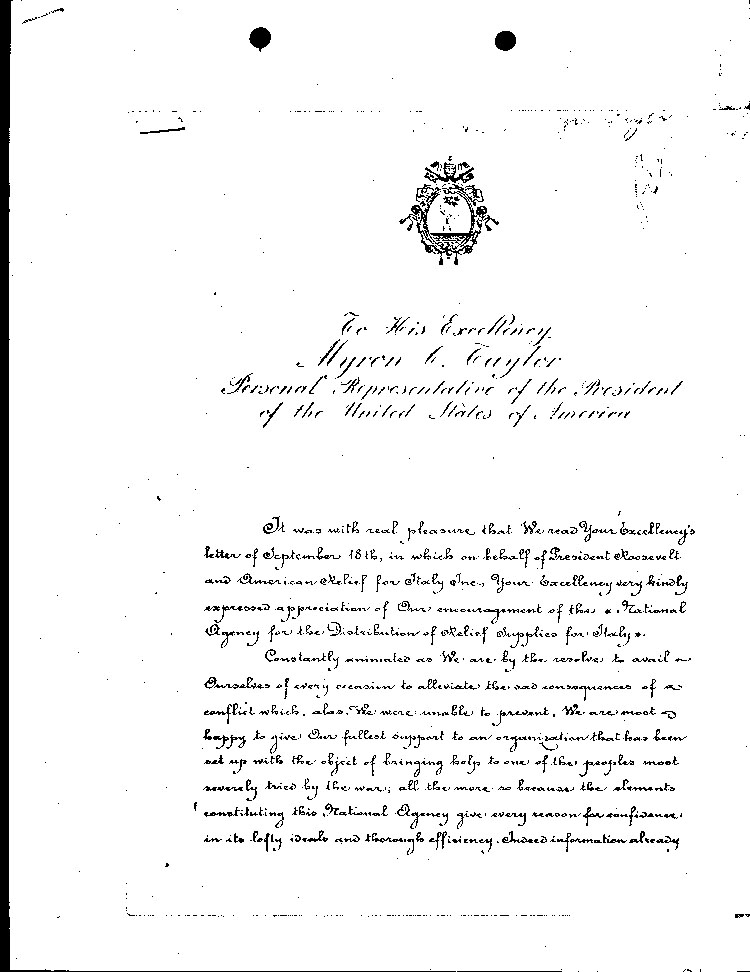 To His Excellency
Myron C. Taylor
Personal Representative of the President
of the United States of America
It was with real pleasure that We read Your Excellency's
letter of September 18th, in which on behalf of President Roosevelt
and American Relief for Italy Inc., Your Excellency very kindly
expressed appreciation of Our encouragement of the « National
Agency for the Distribution of Relief Supplies for Italy ».
Constantly animated as We are by the resolve to avail
Ourselves of every occasion to alleviate the sad consequences of a
conflict which, alas, We were unable to prevent, We are most
happy to give Our fullest support to an organization that has been
set up with the object of bringing help to one of the peoples most
severely tried by the war; all the more so because the elements
constituting this National Agency give every reason for confidence
in its lofty ideals and thorough efficiency. Indeed information already